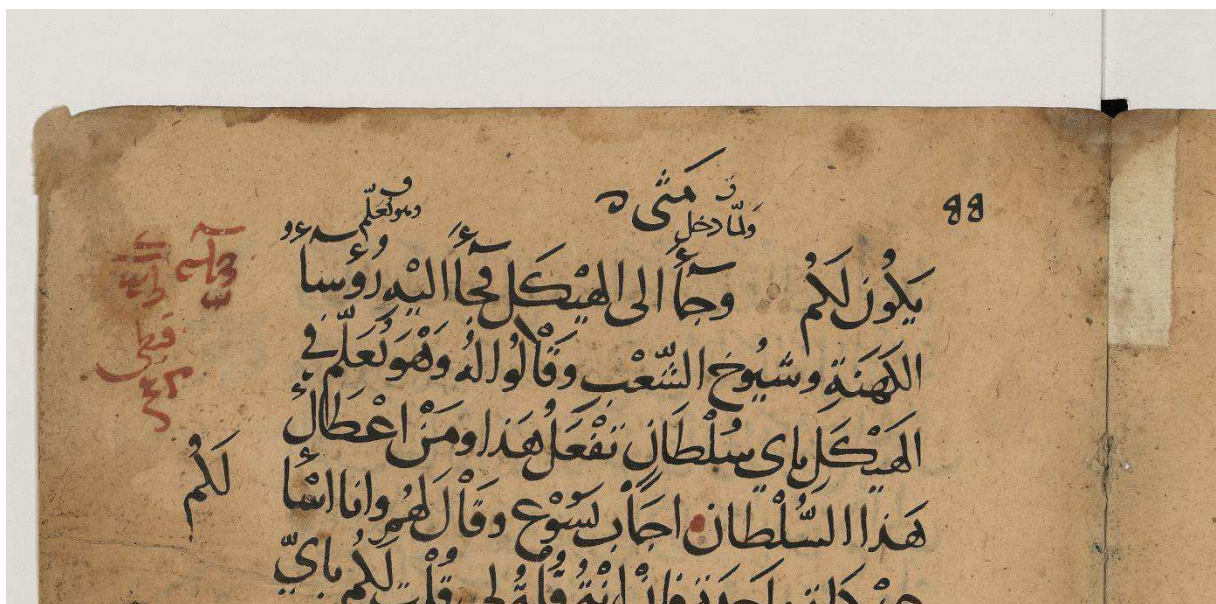 متى
ولما دخل
وهو يعلم
يَكُون لَكُم وجاءَ الى الهَيْكَل فجاءَ اليْهِ رُؤسا
الكَهَنَةِ وشيُوخ الشّعْب وقَالُوا لهُ وَهْو يُعَلّم في
الهَيْكَل باي سُلْطَانٍ تفْعَلُ هَذا ومَنْ اعْطَاك
هَذا السُّلْطان اجَابَ يَسُوْع وقَالَ لهُم وانا اسْا
لَكُم
قُلْت لكُم بايّ